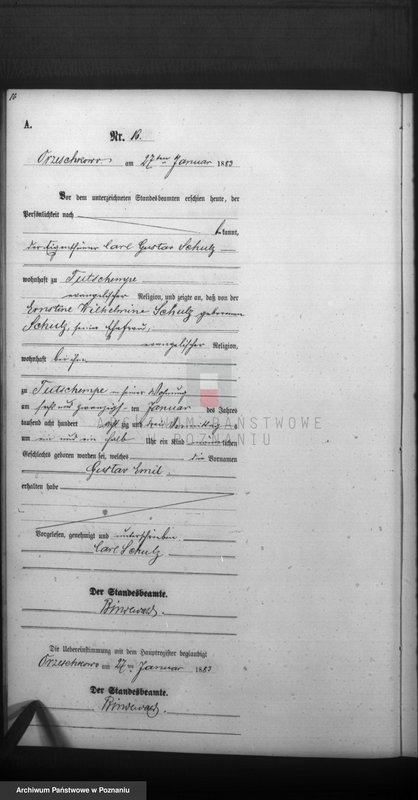 16
A.
Nr. 16.
Orzeschkowo am 27ten Januar 1883
Vor dem unterzeichneten Standesbeamten erschien heute, der
Persönlichkeit nach
bekannt,
der Eigenthümer Carl Gustav Schulz
wohnhaft zu Tutschempe
evangelischer Religion, und zeigte an, daß von der
Ernstine Wilhelmine Schulz geborenen
Schulz, seine Ehefrau,
evangelischer Religion,
wohnhaft bei ihm
zu Tutschempe in seiner Wohnung
am sechs und zwanzigsten Januar des Jahres
tausend acht hundert achtzig und drei Vormittags
um ein und ein halb Uhr ein Kind männlichen
Geschlechts geboren worden sei, welches die Vornamen
Gustav Emil
erhalten habe
Vorgelesen, genehmigt und unterschrieben
Carl Schulz
Der Standesbeamte.
Die Uebereinstimmung mit dem Hauptregister beglaubigt
Orzeschkowo am 27ten Januar 1883
Der Standesbeamte.
ARCHIWUM PAŃSTWOWE
W POZNANIU
Archiwum Państwowe w Poznaniu